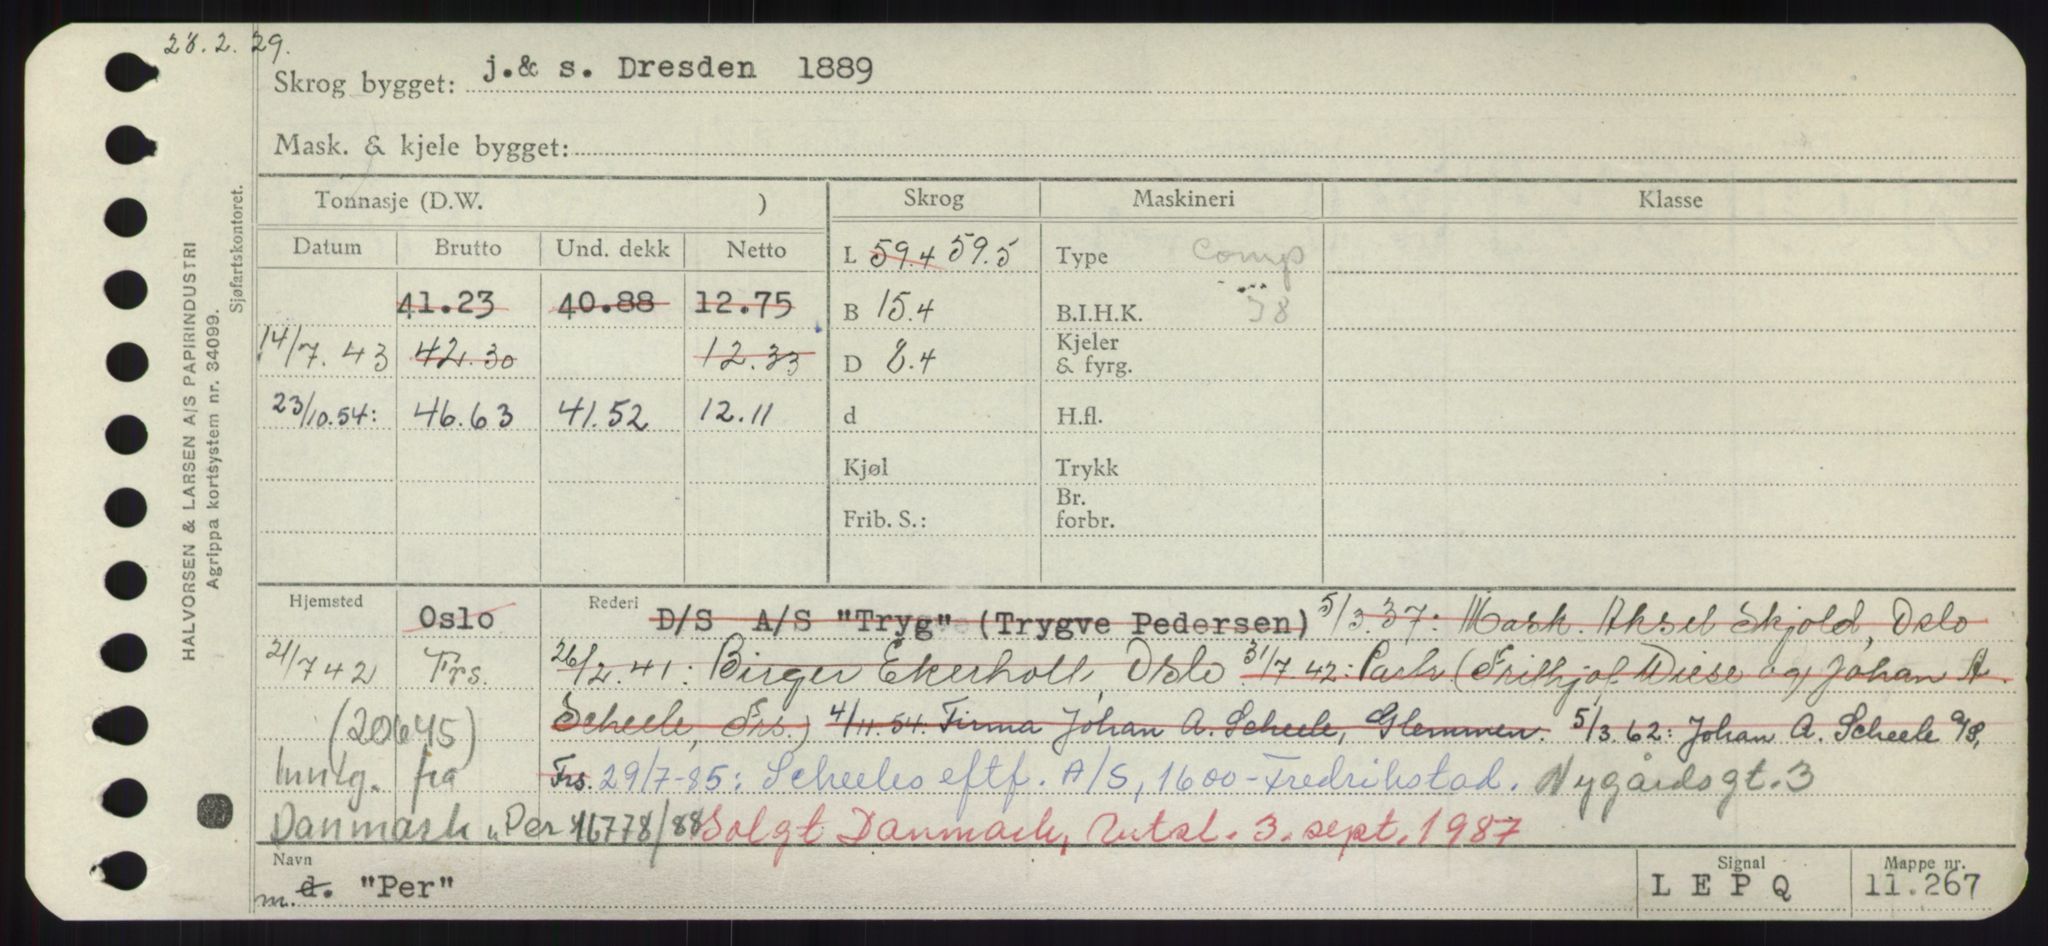 28.2.29.
Skrog bygget: j.& s. Dresden 1889
Mask. & kjele bygget:
Tonnasje (D.W. ) Skrog Maskineri Klasse
Datum Brutto Und. dekk Netto L 59.4 59.5 Type Comp
41.23 40.88 12.75 B 15.4 B.I.H.K. 38
14/7.43 42.30 12.33 D 8.4 Kjeler & fyrg.
23/10.54: 46.63 41.52 12.11 d H.fl.
Kjøl Trykk
Frib. S.: Br. forbr.
Hjemsted Oslo Rederi D/S A/S "Tryg" (Trygve Pedersen) 5/3.37: Mask. Aksel Skjold, Oslo
21/742 Frs. 26/2.41: Birger Ekerholt, Oslo 31/7.42: Partr. (Frithjof Wiese og Johan A.
(20645) Scheele, Frs.) 4/11.54. Firma Johan A. Scheele, Glemmen. 5/3.62: Johan A. Scheele a/s,
Innlg. fra Frs. 29/7-85: Scheeles eftf. A/S, 1600-Fredrikstad. Nygårdsgt. 3
Danmark "Per 16778/88 Solgt Danmark, Utsl. 3. sept. 1987
Navn Signal Mappe nr.
m. d. "Per" L E P Q 11.267
HALVORSEN & LARSEN A/S PAPIRINDUSTRI
Agrippa kortsystem nr. 34099.
Sjøfartskontoret.